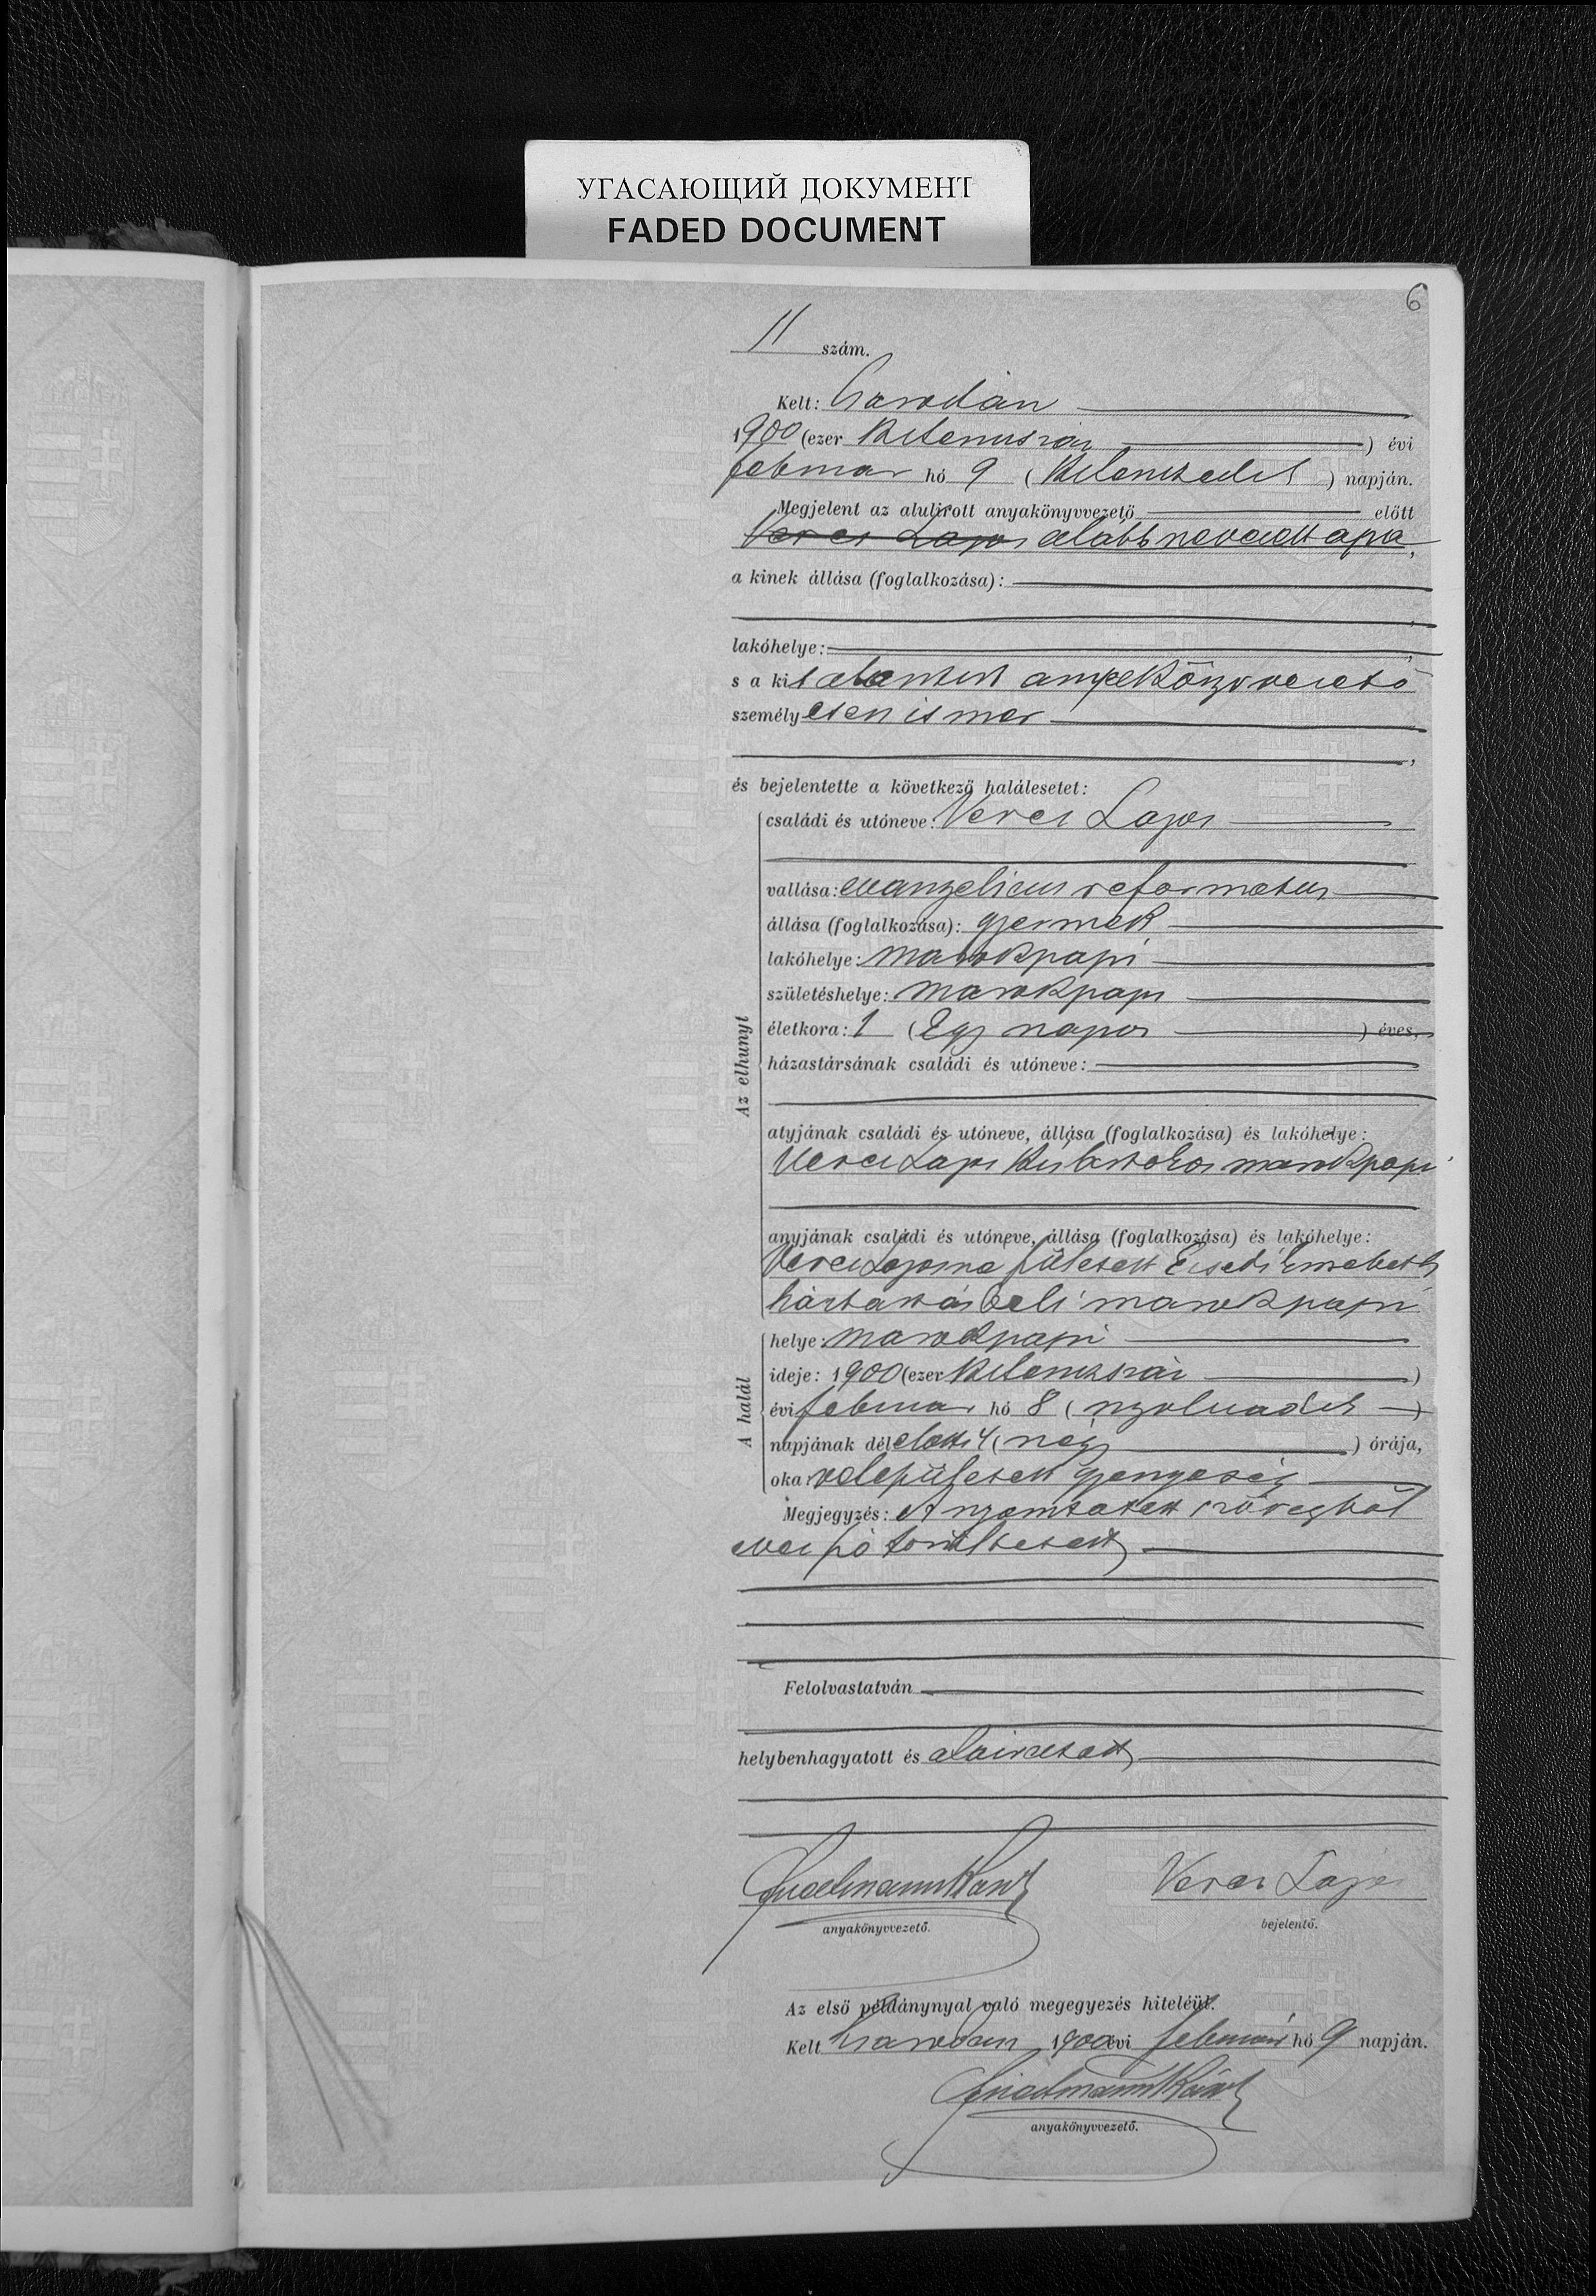 УГАСАЮЩИЙ ДОКУМЕНТ
FADED DOCUMENT
6
11 szám.
Kelt: Csarodán
1900 (ezer kilenczszáz) évi
február hó 9 (kilenczedik) napján.
Megjelent az alulirott anyakönyvvezető előtt
Veres Lajos alább nevezett apa,
a kinek állása (foglalkozása):
lakóhelye:
s a kit alantirt anyakönyvvezető
személyesen ismer
és bejelentette a következő halálesetet:
Az elhunyt
családi és utóneve: Veres Lajos
vallása: evangelicus reformatus
állása (foglalkozása): gyermek
lakóhelye: Marokpapi
születéshelye: Marokpapi
életkora: 1 (Egy napos) éves,
házastársának családi és utóneve:
atyjának családi és utóneve, állása (foglalkozása) és lakóhelye:
Veres Lajos kisbirtokos marokpapi
anyjának családi és utóneve, állása (foglalkozása) és lakóhelye:
Veres Lajosné született Ecsedi Erzsébeth
háztartásbeli marokpapi
A halál
helye: Marokpapi
ideje: 1900 (ezer kilenczszáz)
évi február hó 8 (nyolczadik)
napjának délelőtti 4 (négy) órája,
oka: veleszületett gyengeség
Megjegyzés: A nyomtatott szövegből
éves szó töröltetett
Felolvastatván
helybenhagyatott és aláiratott
anyakönyvvezető.
Veres Lajos
bejelentő.
Az első példánynyal való megegyezés hiteléül.
Kelt Csarodán 1900 évi február hó 9 napján.
anyakönyvvezető.